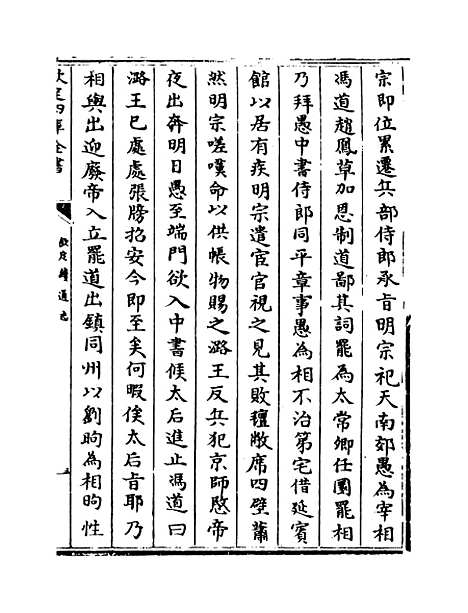 宗即位累遷兵部侍郎承旨明宗祀天南郊愚為宰相
馮道趙鳳草加恩制道鄙其詞罷為太常卿任圜罷相
乃拜愚中書侍郎同平章事愚為相不治第宅借延賓
館以居有疾明宗遣宦官視之見其敗氊敝席四壁蕭
然明宗嗟嘆命以供帳物賜之潞王反兵犯京師愍帝
夜出奔明日愚至端門欲入中書候太后進止馮道曰
潞王已處處張牓招安今即至矣何暇俟太后旨耶乃
相與出迎廢帝入立罷道出鎮同州以劉昫為相昫性
欽定四庫全書
欽定續通志
五